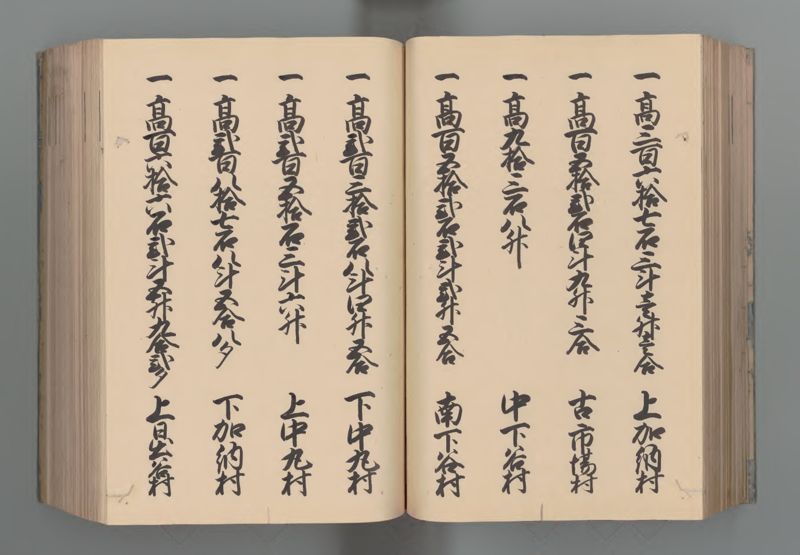 一 高三百六拾七石三斗壱升壱合 上加納村
一 高百五拾弐石四斗九升三合 古市場村
一 高九拾三石八升 中下谷村
一 高百五拾弐石弐斗弐升五合 南下谷村
一 高弐百三拾弐石八斗四升五合 下中丸村
一 高弐百五拾石三斗六升 上中丸村
一 高弐百八拾七石八斗五合八夕 下加納村
一 高百六拾六石弐斗五升九合弐夕 上日出谷村